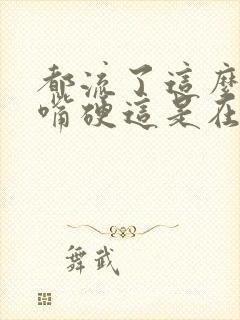 都流了這麼
嘴硬這是在
舞武